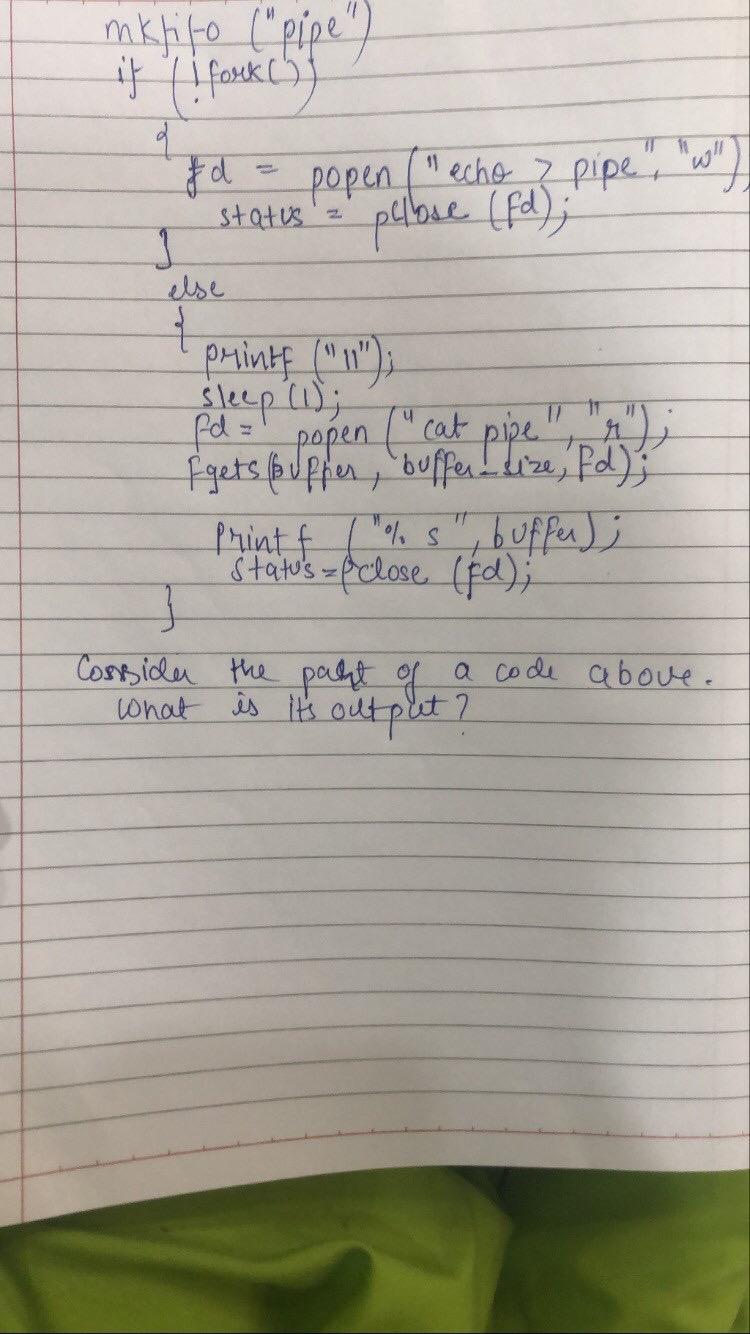 mkfifo ("pipe")
if (!fork())
{
fd = popen ("echo > pipe", "w"),
status = pclose (fd);
}
else
{
printf ("11");
sleep (1);
fd = popen ("cat pipe", "r");
Fgets (buffer, buffer_size, fd);
Printf ("% s", buffer);
status = pclose (fd);
}
Consider the part of a code above.
What is its output?